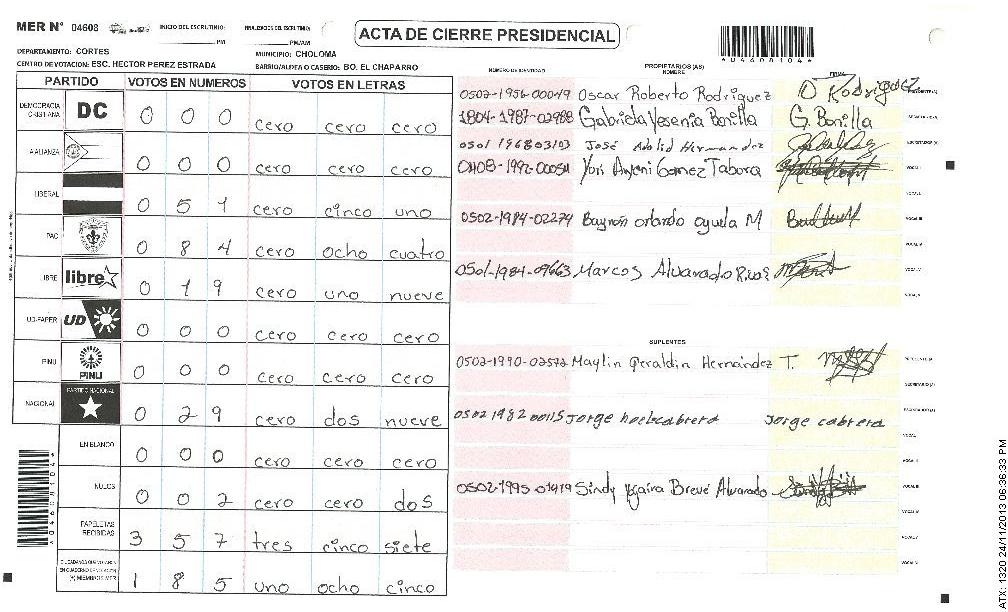 MER N° 04608 INICIO DEL ESCRUTINIO: PM FINALIZACION DEL ESCRUTINIO: PM/AM
ACTA DE CIERRE PRESIDENCIAL
*04608104*
DEPARTAMENTO: CORTES MUNICIPIO: CHOLOMA
CENTRO DE VOTACION: ESC. HECTOR PEREZ ESTRADA BARRIO/ALDEA O CASERIO: BO. EL CHAPARRO
PARTIDO VOTOS EN NUMEROS VOTOS EN LETRAS
DEMOCRACIA CRISTIANA DC 0 0 0 cero cero cero
ALIANZA 0 0 0 cero cero cero
LIBERAL 0 5 1 cero cinco uno
PAC 0 8 4 cero ocho cuatro
LIBRE libre 0 1 9 cero uno nueve
UD-FAPER UD 0 0 0 cero cero cero
PINU PINU 0 0 0 cero cero cero
NACIONAL PARTIDO NACIONAL 0 2 9 cero dos nueve
EN BLANCO 0 0 0 cero cero cero
NULOS 0 0 2 cero cero dos
PAPELETAS RECIBIDAS 3 5 7 tres cinco siete
1 8 5 uno ocho cinco
*04608104*
NUMERO DE IDENTIDAD PROPIETARIOS (AS) NOMBRE FIRMA
0502-1956-00049 Oscar Roberto Rodriguez O Rodriguez
1804-1987-02988 Gabriela Yesenia Bonilla G. Bonilla
0501 196803103 José Adolid Hernandez
Yoris Antoni Gomez Tabora
0502-1984-02274 Bayron orlando ayala M
0501-1984-09663 Marcos Alvarado Rivas
SUPLENTES
0502-1990-02572 Maylin Geraldin Hernandez T.
0502 1982 00115 Jorge cabrera Jorge cabrera
0502-1995 01419 Sindy Brevé Alvarado
ATX: 1320 24/11/2013 06:36:33 PM